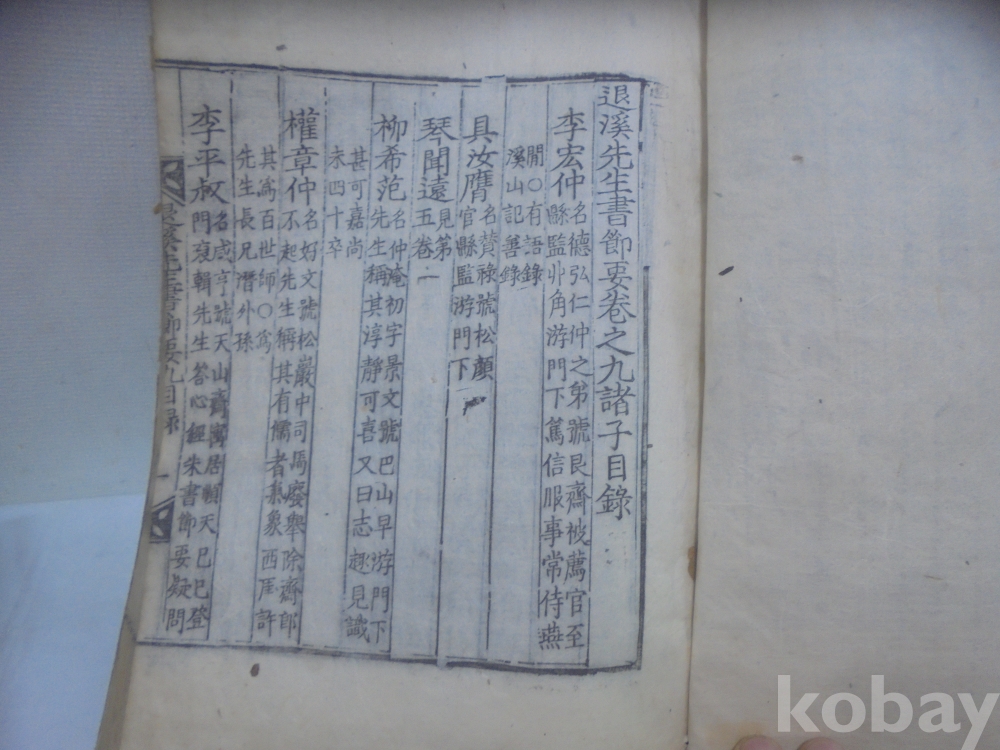 退溪先生書節要卷之九諸子目錄
李宏仲
名德弘仁仲之弟號艮齋被薦官至
縣監丱角游門下篤信服事常侍燕
閒〇有語錄
溪山記善錄
具汝膺
名贊祿號松顏
官縣監游門下
琴聞遠
見第
五卷
柳希范
名仲淹初字景文號巴山早游門下
先生稱其淳靜可喜又曰志趣見識
甚可嘉尚
未四十卒
權章仲
名好文號松巖中司馬廢舉除齋郎
不起先生稱其有儒者氣象西厓許
其爲百世師〇爲
先生長兄潛外孫
李平叔
名咸亨號天山齋寓居順天己巳登
門裒輯先生答心經朱書節要疑問
退溪先生書節要九目錄
一
kobay